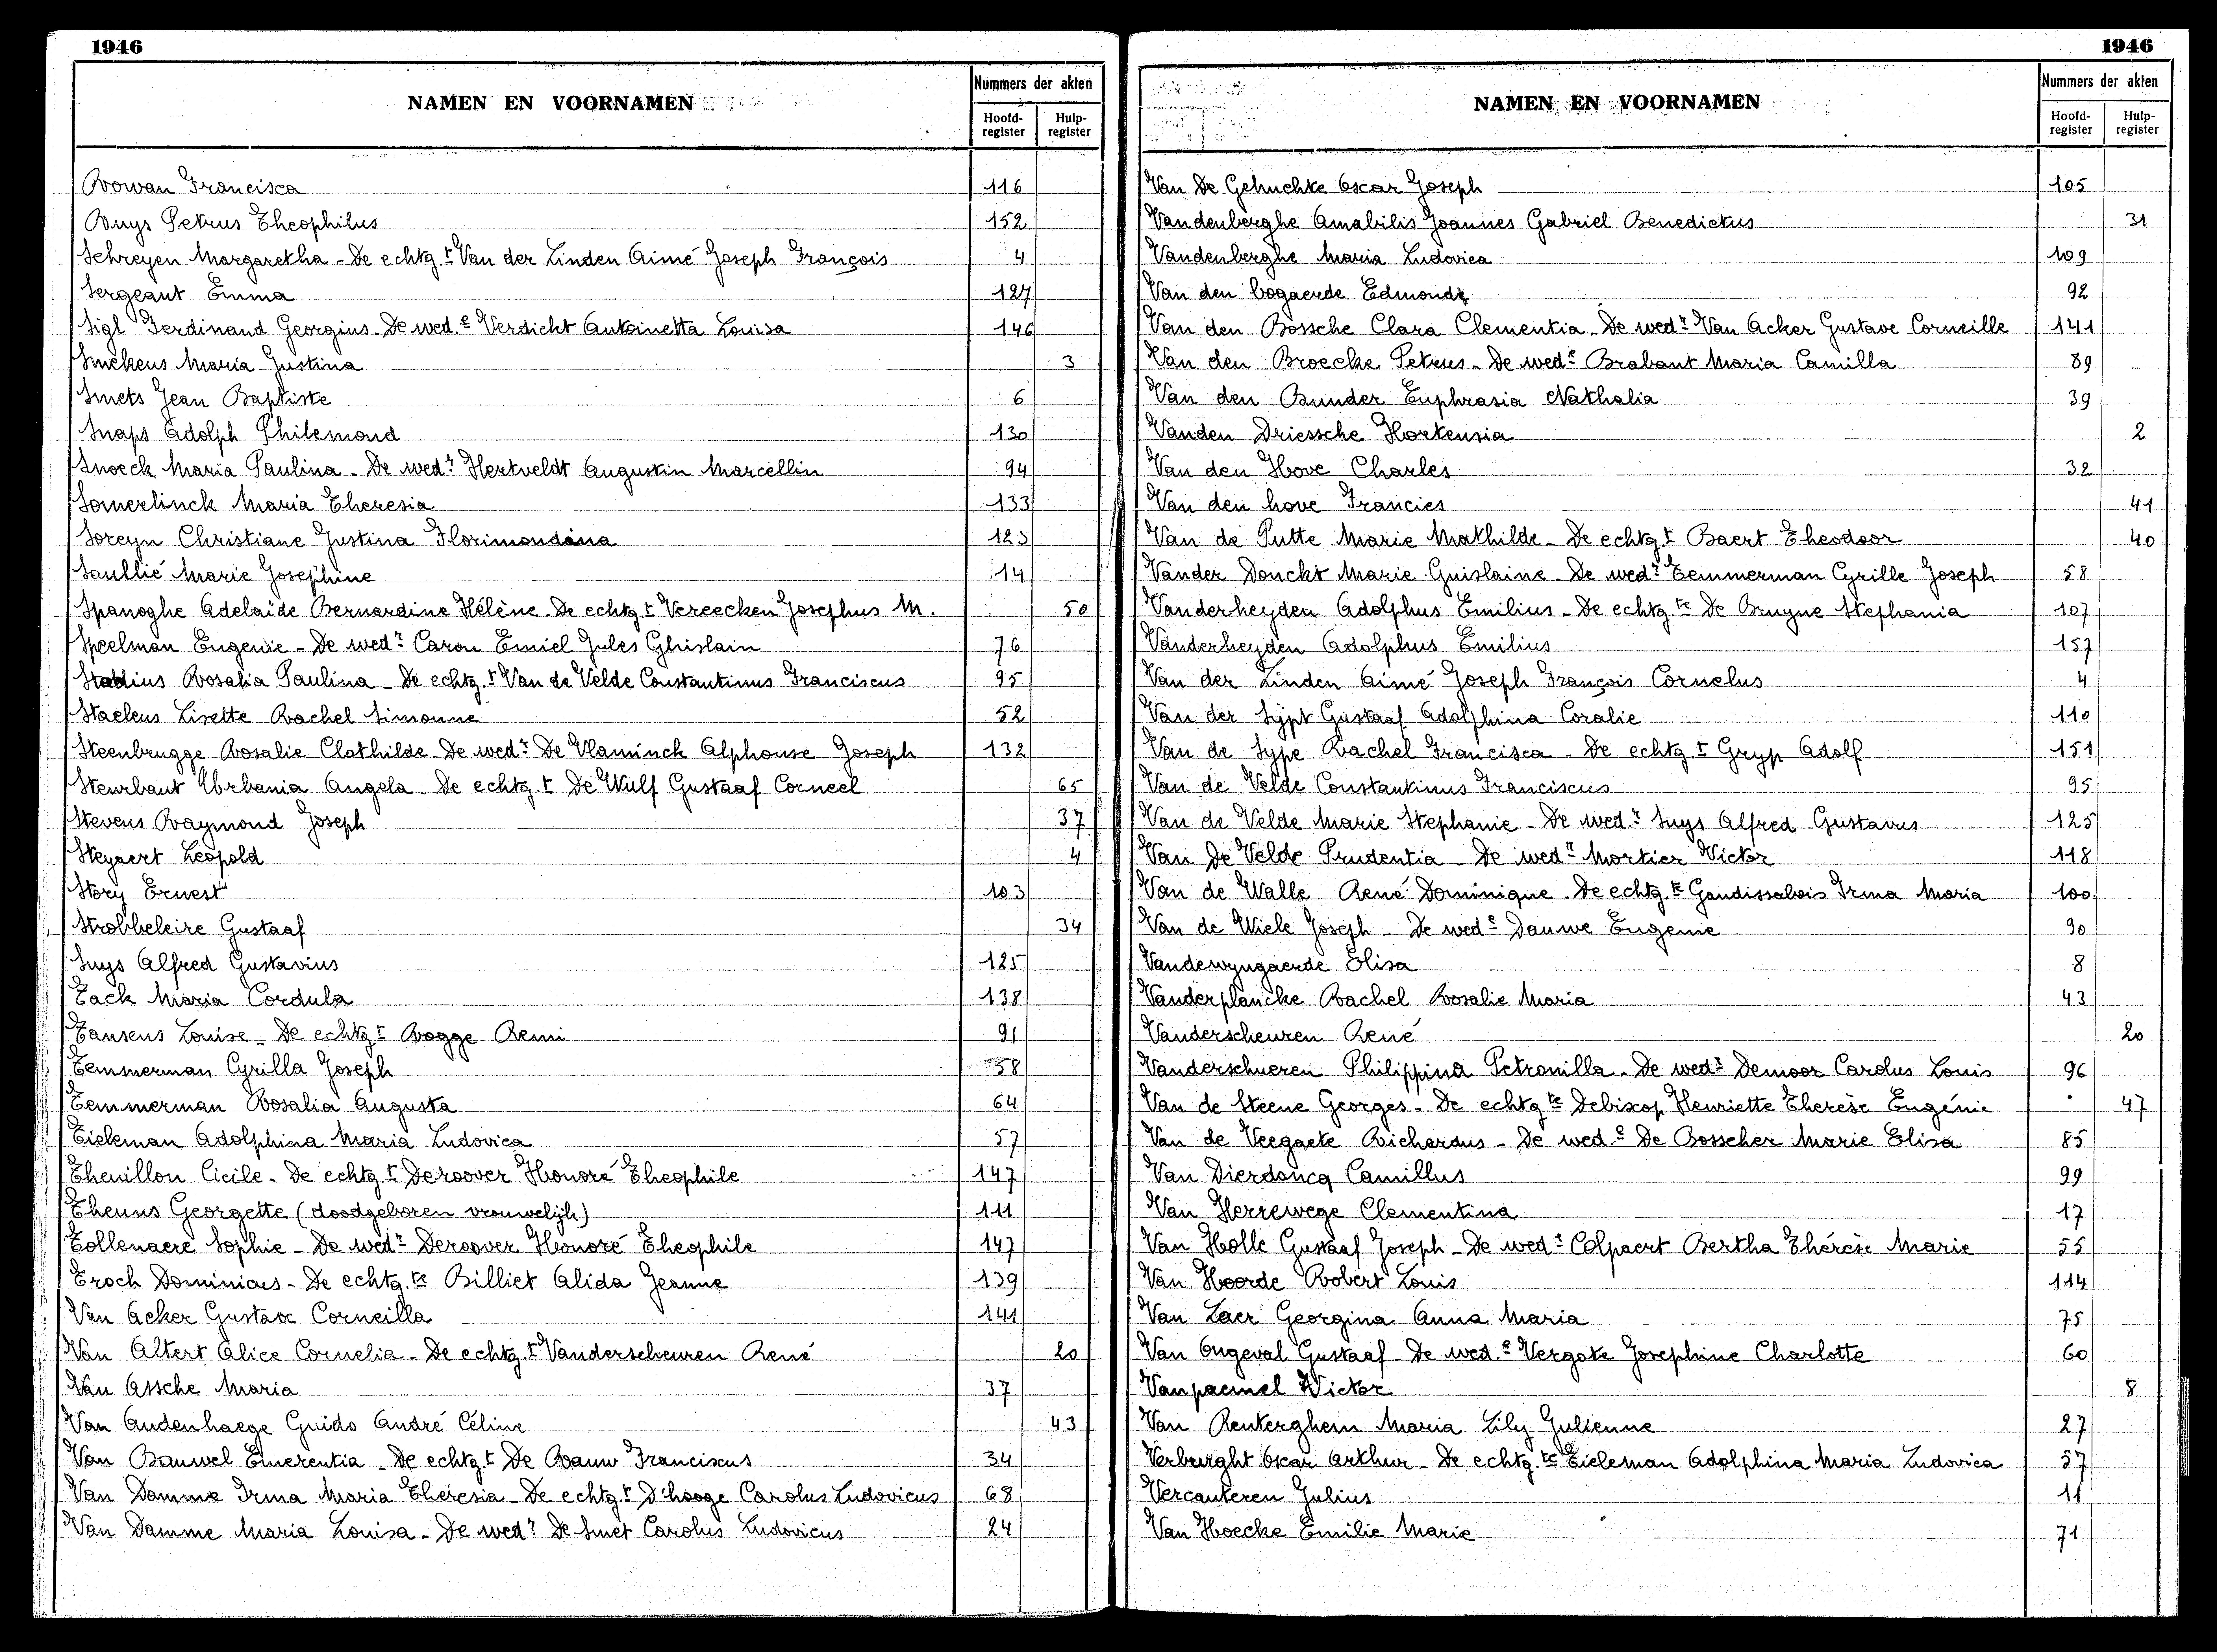 1946
NAMEN EN VOORNAMEN
Nummers der akten
Hoofd-register
Hulp-register
Rowan Francisca 116
Ruys Petrus Theophilus 152
Schreyen Margaretha - De echtg.t Van der Linden Aimé Joseph François 4
Sergeant Emma 127
Sigl Ferdinand Georgius - De wed.e Verdickt Antoinetta Louisa 146
Smekens Maria Justina 3
Smets Jean Baptiste 6
Snaps Adolph Philemond 130
Snoeck Maria Paulina - De wed.r Hertveldt Augustin Marcellin 94
Somerlinck Maria Theresia 133
Soreyn Christiane Justina Florimondina 123
Soullié Marie Joséphine 14
Spanoghe Adelaïde Bernardine Hélène - De echtg.t Vereecken Josephus M. 50
Speelman Eugenie - De wed.r Caron Emiel Jules Ghislain 76
Rosalia Paulina - De echtg.t Van de Velde Constantinus Franciscus 95
Staelens Lisette Rachel Simonne 52
Steenbrugge Rosalie Clothilde - De wed.r De Vlaminck Alphonse Joseph 132
Steurbaut Urbania Angela - De echtg.t De Wulf Gustaaf Corneel 65
Stevens Raymond Joseph 37
Steyaert Leopold 4
Story Ernest 103
Strobbeleire Gustaaf 34
Suys Alfred Gustavius 125
Tack Maria Cordula 138
Tansens Louise - De echtg.t Rogge Remi 91
Temmerman Cyrilla Joseph 58
Temmerman Rosalia Augusta 64
Tieleman Adolphina Maria Ludovica 57
Thevillon Cicile - De echtg.t Deroover Honoré Theophile 147
Theuns Georgette (doodgeboren vrouwelijk) 111
Tollenaere Sophie - De wed.r Deroover Honoré Theophile 147
Troch Dominicus - De echtg.te Billiet Alida Jeanne 139
Van Acker Gustave Corneille 141
Van Altert Alice Cornelia - De echtg.t Vanderscheuren René 20
Van Assche Maria 37
Van Audenhaege Guido André Céline 43
Van Bauwel Emerentia - De echtg.t De Rauw Franciscus 34
Van Damme Irma Maria Theresia - De echtg.t D'hooge Carolus Ludovicus 68
Van Damme Maria Louisa - De wed.r De Smet Carolus Ludovicus 24
1946
NAMEN EN VOORNAMEN
Nummers der akten
Hoofd-register
Hulp-register
Van De Gehuchte Oscar Joseph 105
Vandenberghe Amabilis Joannes Gabriel Benedictus 31
Vandenberghe Maria Ludovica 109
Van den bogaerde Edmonde 92
Van den Bossche Clara Clementia - De wed.r Van Acker Gustave Corneille 141
Van den Broecke Petrus - De wed.e Brabant Maria Camilla 89
Van den Bunder Euphrasia Nathalia 39
Vanden Driessche Hortensia 2
Van den Hove Charles 32
Van den hove Francies 41
Van de Putte Marie Mathilde - De echtg.t Baert Theodoor 40
Vander Donckt Marie Guislaine - De wed.r Temmerman Cyrille Joseph 58
Vanderheyden Adolphus Emilius - De echtg.te De Bruyne Stephania 107
Vanderheyden Adolphus Emilius 157
Van der Linden Aimé Joseph François Cornelus 4
Van der Sypt Gustaaf Adolphina Coralie 110
Van de Sype Rachel Francisca - De echtg.t Gryp Adolf 151
Van de Velde Constantinus Franciscus 95
Van de Velde Marie Stephanie - De wed.r Suys Alfred Gustavus 125
Van De Velde Prudentia - De wed.r Mortier Victor 118
Van de Walle René Dominique - De echtg.te Gaudissabois Irma Maria 100
Van de Wiele Joseph - De wed.e Dauwe Eugenie 90
Vandewyngaerde Elisa 8
Vanderplancke Rachel Rosalie Maria 43
Vanderscheuren René 20
Vanderschueren Philippina Petronilla - De wed.r Demoor Carolus Louis 96
Van de Steene Georges - De echtg.te Debiscop Henriette Therèse Eugénie 47
Van de Veegaete Richardus - De wed.e De Bosscher Marie Elisa 85
Van Dierdoncq Camillus 99
Van Herrewege Clementina 17
Van Holle Gustaaf Joseph - De wed.e Colpaert Bertha Thérèse Marie 55
Van Hoorde Robert Louis 114
Van Laer Georgina Anna Maria 75
Van Ongeval Gustaaf - De wed.e Vergote Josephine Charlotte 60
Vanpaemel Victor 8
Van Renterghem Maria Lily Julienne 27
Verbrught Oscar Arthur - De echtg.te Tieleman Adolphina Maria Ludovica 57
Vercauteren Julius 11
Van Hoecke Emilie Marie 71